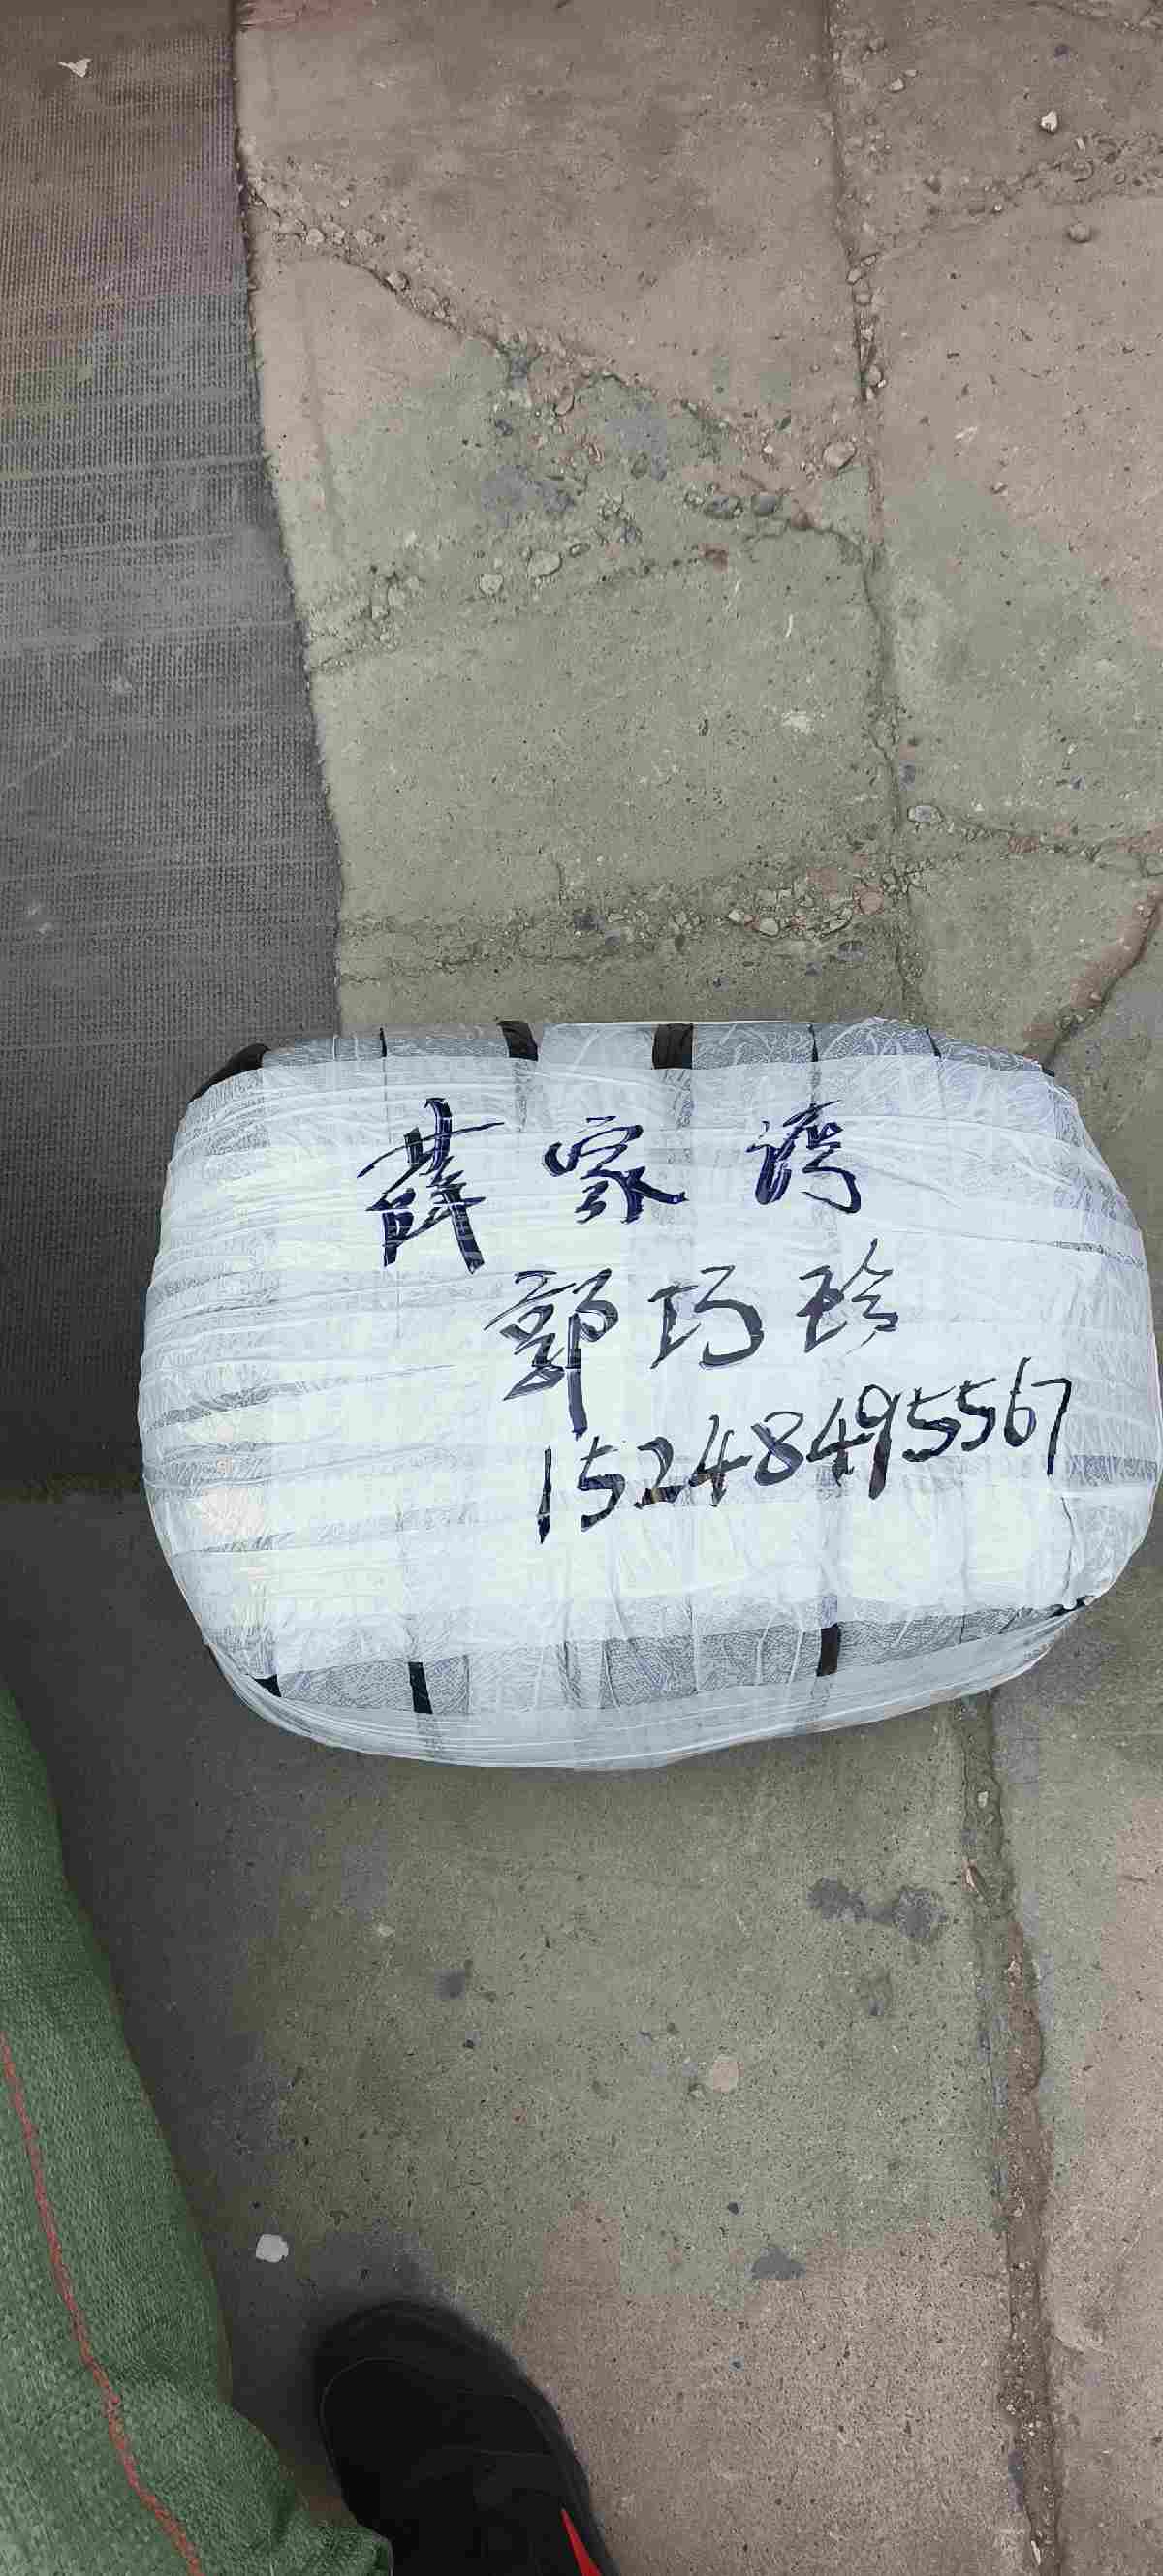 薛家湾
郭巧珍
15248495567